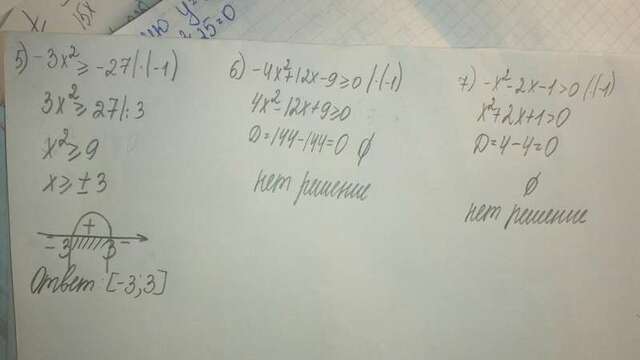 15x
25=0
5) -3x² ≥ -27 |·(-1)
3x² ≥ 27 |:3
x² ≥ 9
x ≥ ±3
+
-3 3 -
Ответ: [-3;3]
6) -4x²+12x-9≥0 |·(-1)
4x²-12x+9≥0
D=144-144=0 ∅
нет решение
7) -x²-2x-1>0 |·(-1)
x²+2x+1>0
D=4-4=0
∅
нет решение